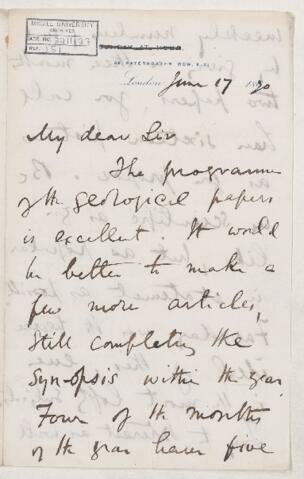 McGILL UNIVERSITY
ARCHIVES
ACC. NO.
REF.
56, PATERNOSTER ROW, E.C.
London June 17 1890
My dear Sir
The programme
of the geological papers
is excellent. It would
be better to make a
few more articles,
still completing the
Synopsis within the year.
Four of the months
of the year have five